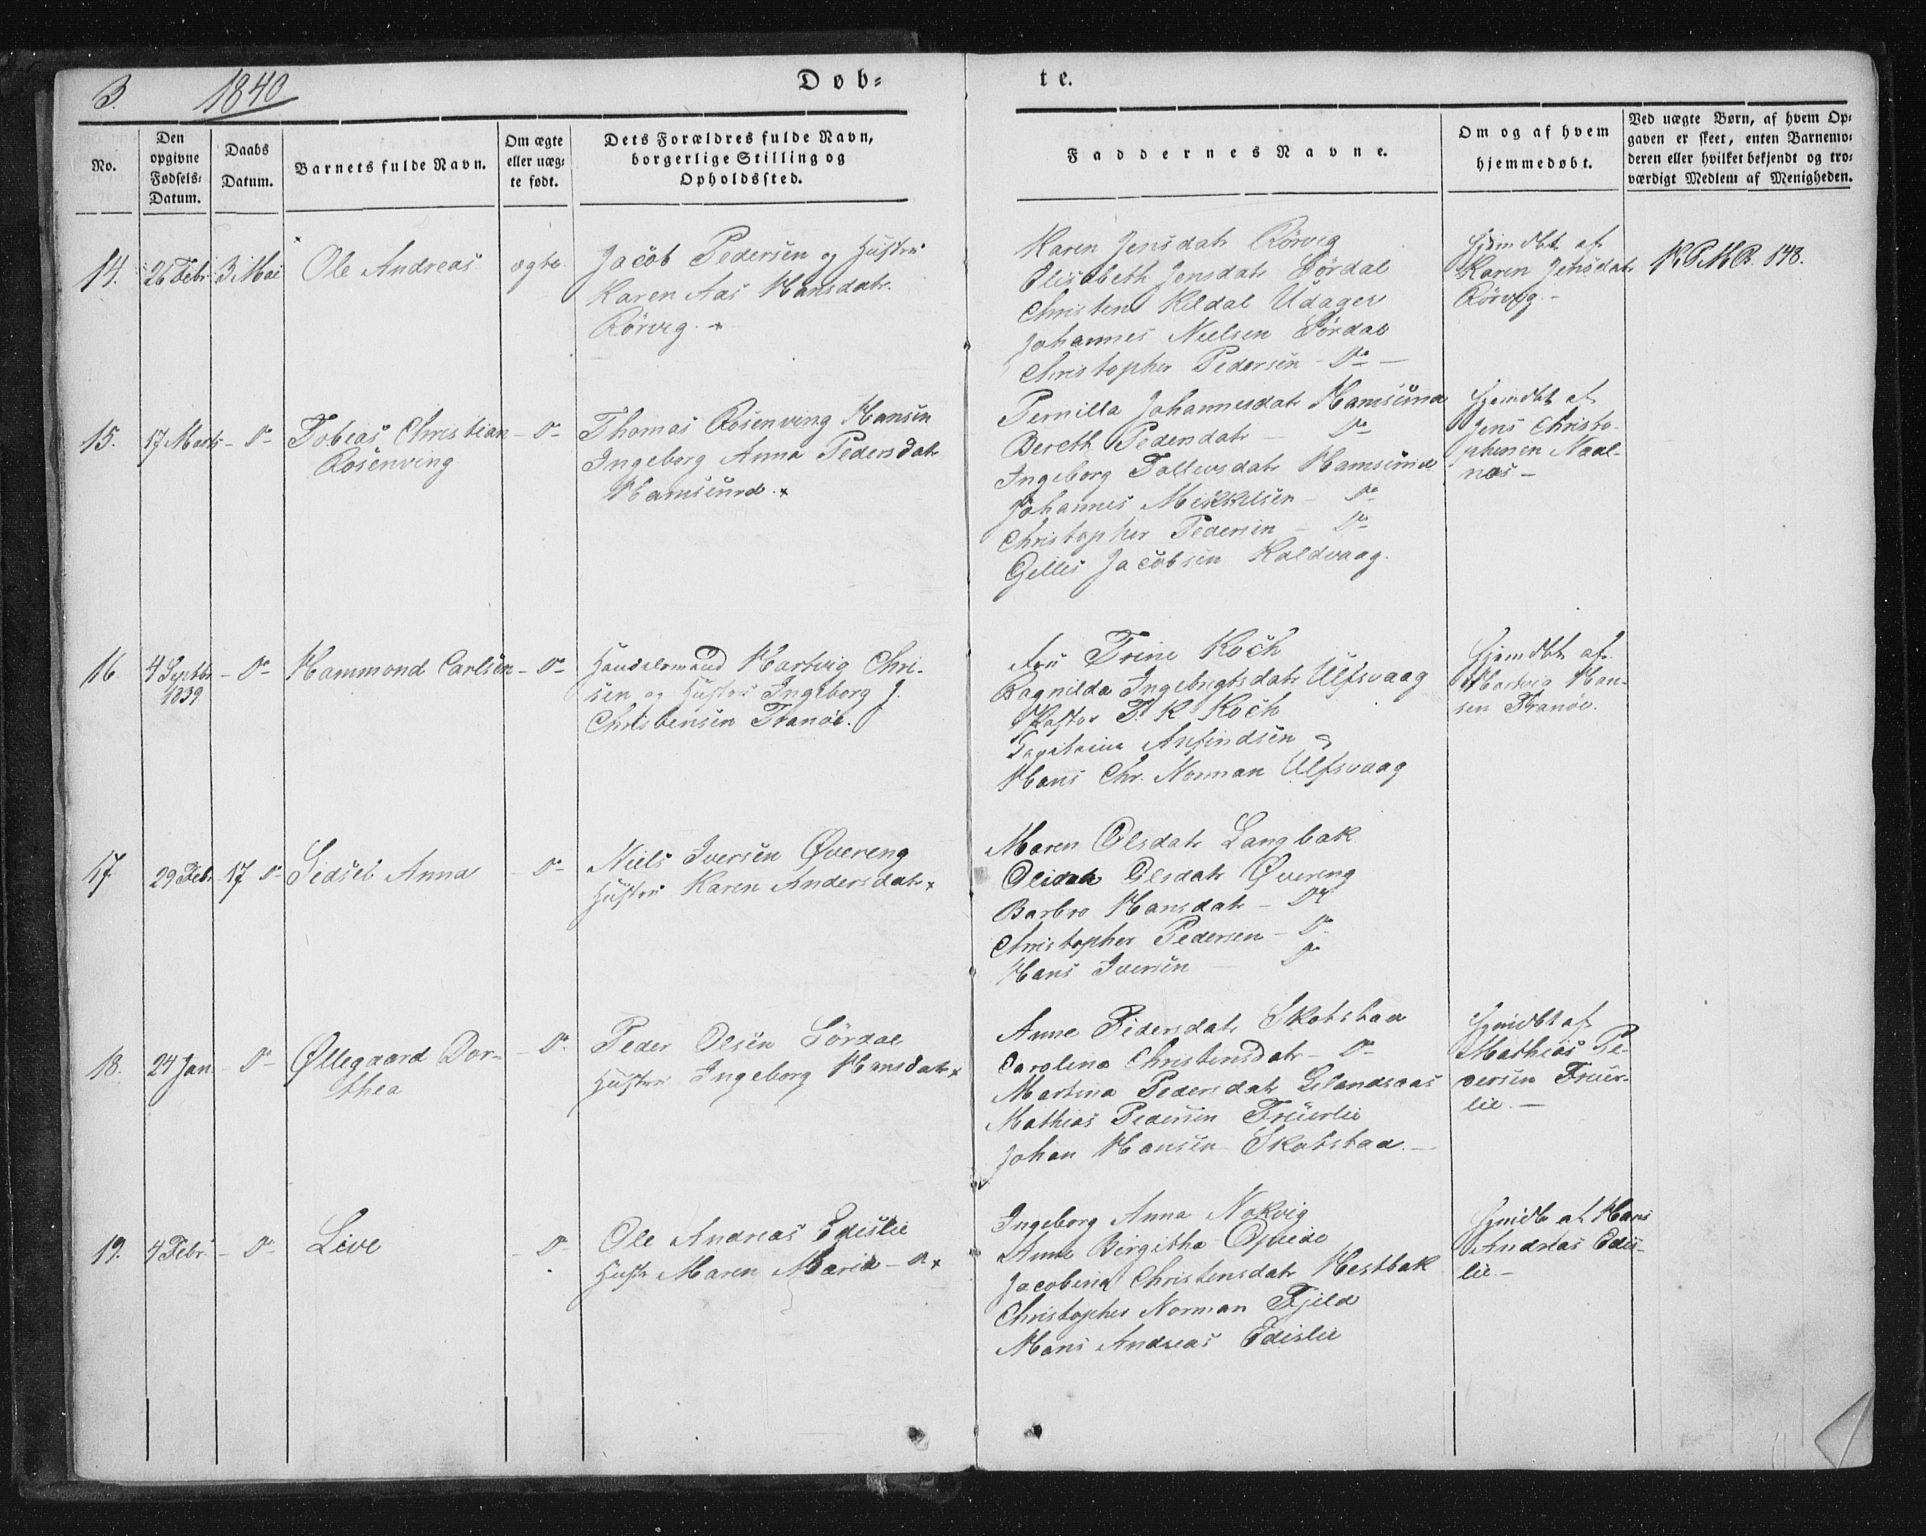 3. 1840. Døb= te.
No.
Den opgivne Fødsels= Datum.
Daabs Datum.
Barnets fulde Navn.
Om ægte eller uæg= te født.
Dets Forældres fulde Navn, borgerlige Stilling og Opholdssted.
Faddernes Navne.
Om og af hvem hjemmedøbt.
Ved uægte Børn, af hvem Op= gaven er skeet, enten Barnemo= deren eller hvilket bekjendt og tro= værdigt Medlem af Menigheden.
14. 26 Febr 3 Mai Ole Andreas ægte
Jacob Pedersen og Hustru
Karen Aas Hansdatr.
Rörvig.
Karen Jensdatr Rörvig
Elisabeth Jensdatr Sördal
Christen Kildal Udager
Johannes Nielsen Sördal
Christopher Pedersen - Do -
Hjemdbt af
Karen Jensdatr
Rörvig. -
K.P.M.B. 148.
15. 17 Marts - Do - Tobias Christian - Do -
Rosenving
Thomas Rosenving Hansen
Ingeborg Anna Pedersdatr
Hamsund.
Pernilla Johannesdatr Hamsund
Bereth Pedersdatr - Do
Ingeborg Tollevsdatr Hamsund
Johannes Mikkelsen - Do
Christopher Pedersen - Do
Gelles Jacobsen Kaldvaag.
Hjemdbt af
Jens Christo-
phersen Naal-
næs -
16 4 Septbr - Do - Hammond Carlsen - Do -
1839
Handelsmand Hartvig Chri-
sen og Hustru Ingeborg J.
Christensen Tranöe.
Fru Trine Koch
Ragnilda Ingebrigtsdatr Ulfsvaag
Pastor T. K Koch
Arfindsen
Hans Chr. Norman Ulfsvaag
Hjemdbt af
Hartvig Han-
sen Tranöe.
17 29 Febr 17 Do Sidsel Anna - Do -
Niels Iversen Øvereng
Hustru Karen Andersdatr
Maren Olsdatr Langbak
Olsdatr Øvereng
Barbro Hansdatr - Do
Christopher Pedersen - Do
Hans Iversen - Do
18. 24 Jan - Do - Øllegaard Dor- - Do -
thea
Peder Olsen Sördal
Hustru Ingeborg Hansdatr
Anne Pedersdatr Skotstad
Carolina Christensdatr - Do -
Martina Pedersdatr
Mathias Pedersen Fruerlie
Johan Hansen Skotstad. -
Hjemdbt af
Mathias Pe-
dersen Fruer-
lie. -
19. 4 Febr - Do - Live - Do -
Ole Andreas Edislie
Hustr Maren Maria - Do
Ingeborg Anna Nokvig
Anne Birgitha
Jacobina Christensdatr Hestbak
Christopher Norman Fjeld
Hans Andreas Edislie
Hjemdb af Hans
Andreas Edis-
lie -